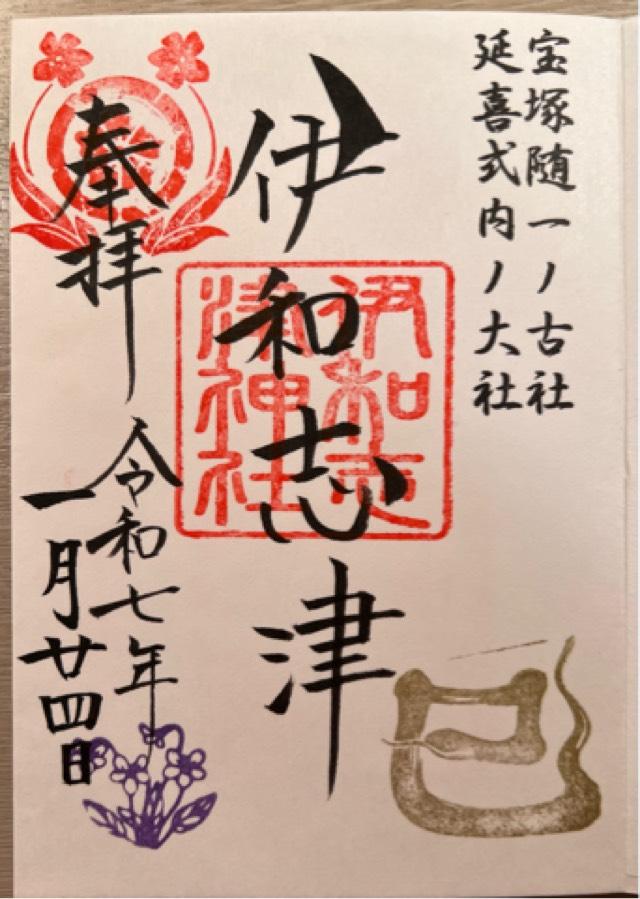 宝塚随一ノ古社
延喜式内ノ大社
伊和志津
伊和志津神社
奉拝
令和七年
一月廿四日
巳